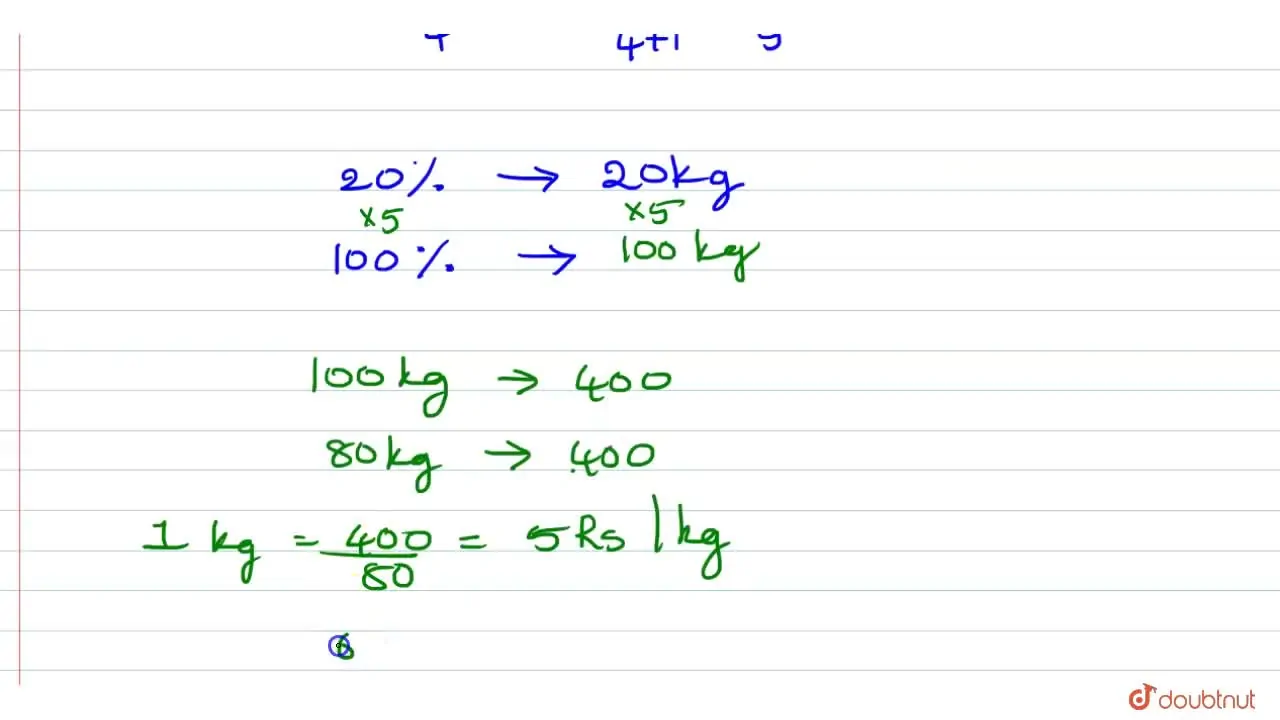 4+1
20% → 20kg
×5 ×5
100% → 100 kg
100kg → 400
80kg → 400
1 kg = 400/80 = 5 Rs / kg
doubtnut